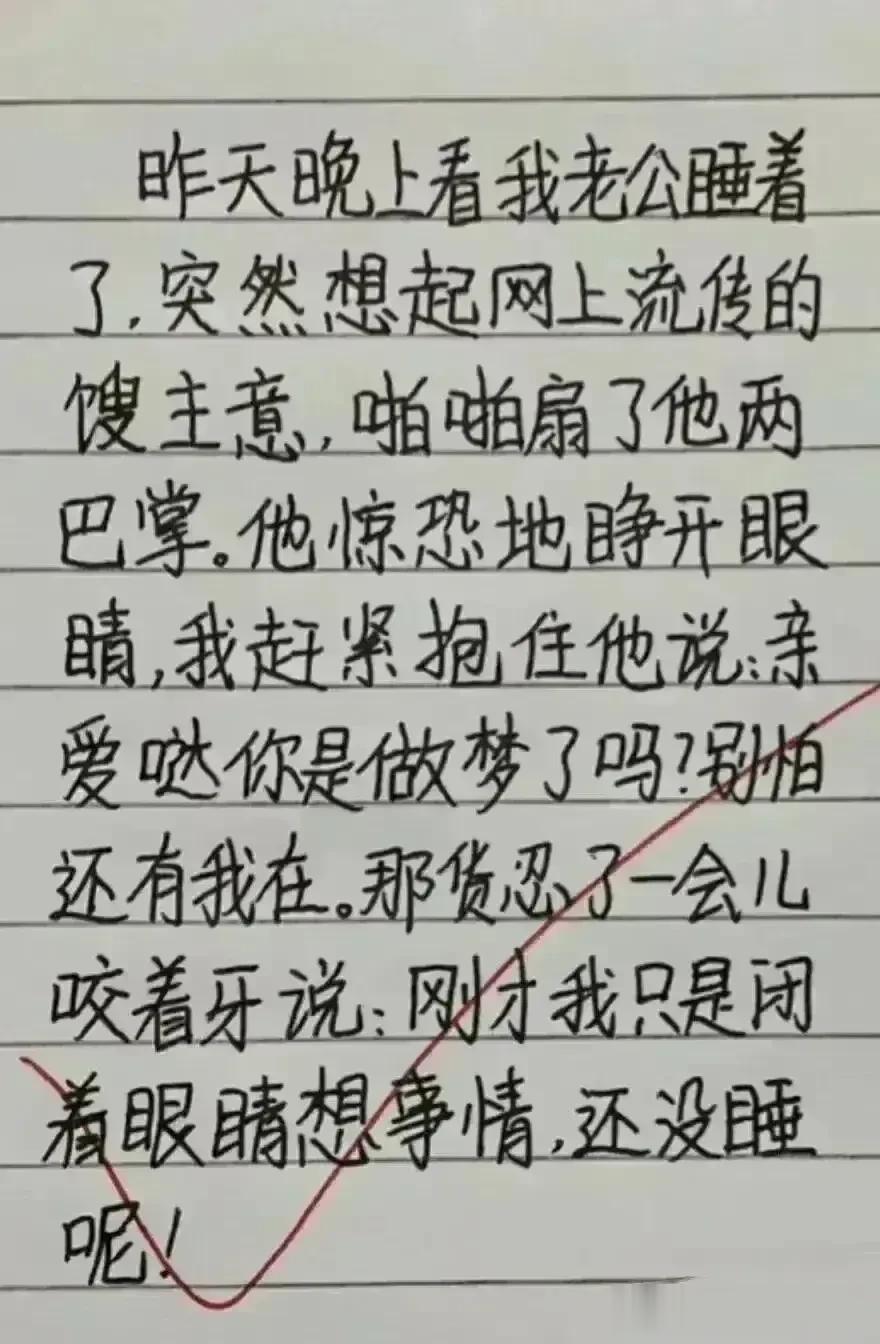 昨天晚上看我老公睡着
了，突然想起网上流传的
馊主意，啪啪扇了他两
巴掌。他惊恐地睁开眼
睛，我赶紧抱住他说：亲
爱哒你是做梦了吗？别怕
还有我在。那货忍了一会儿
咬着牙说：刚才我只是闭
着眼睛想事情，还没睡
呢！